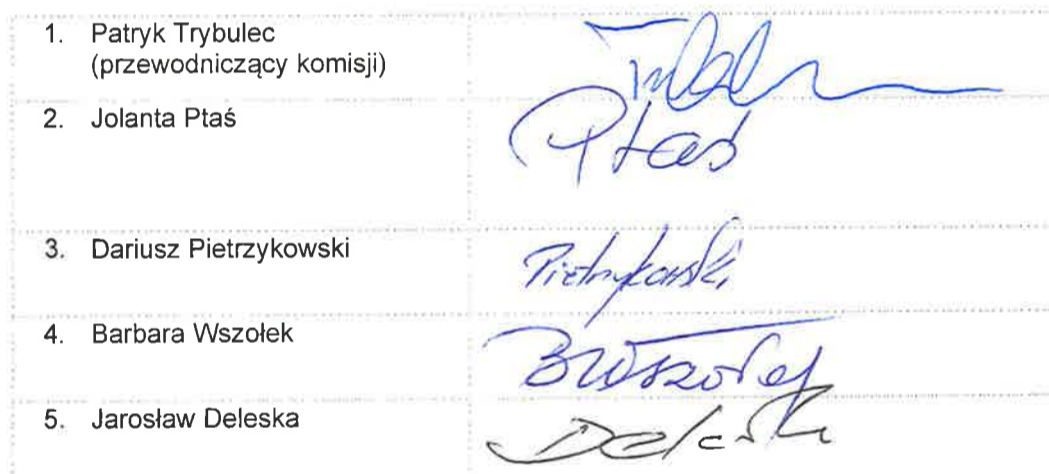 1. Patryk Trybulec
(przewodniczący komisji)
2. Jolanta Ptaś
Ptaś
3. Dariusz Pietrzykowski
Pietrzykowski
4. Barbara Wszołek
BWszołek
5. Jarosław Deleska
Deleska